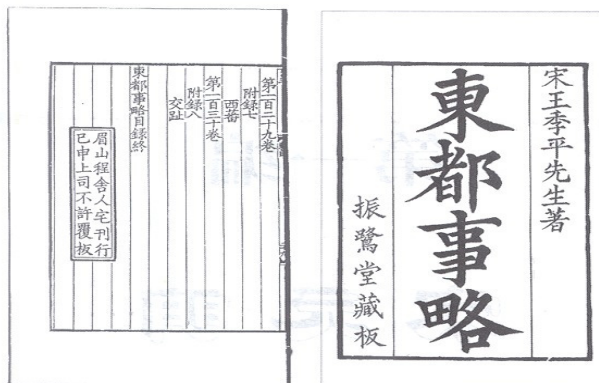 宋王季平先生著
東都事略
振鷺堂藏板
第一百二十九卷
附錄七
西蕃
第一百三十卷
附錄八
交趾
東都事略目録終
眉山程舍人宅刊行
已申上司不許覆板